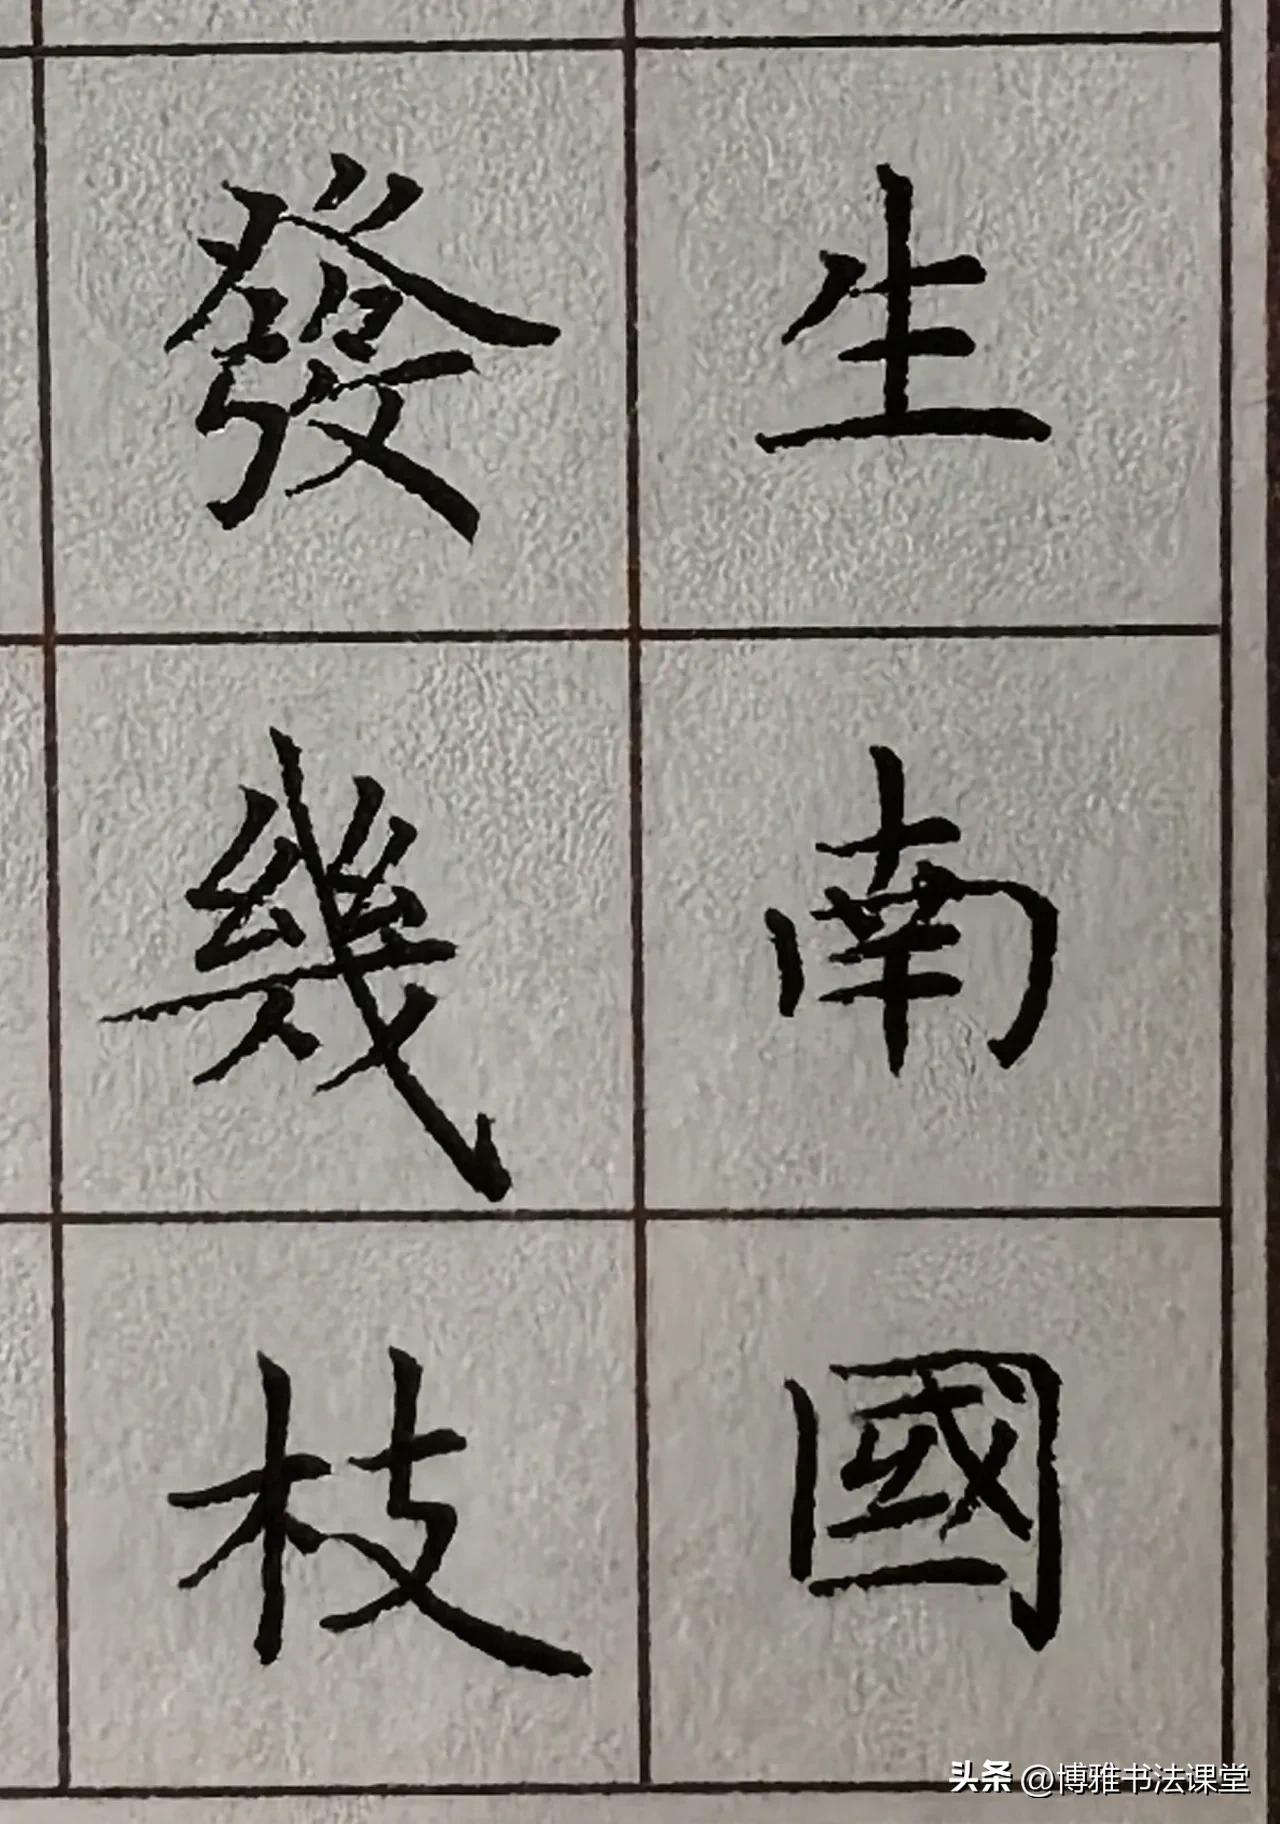 生南國
發幾枝
头条 @博雅书法课堂